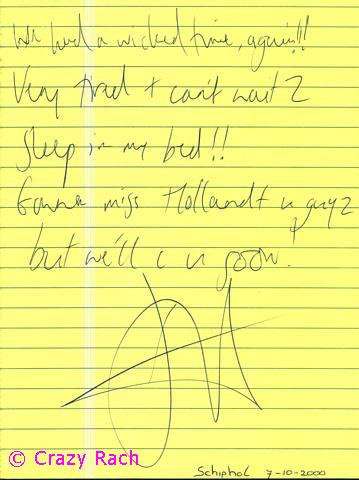 We had a wicked time, again!!!
Very tired + can't wait 2
Sleep in my bed!!
Gonna miss Holland + u guyz
but we'll c u soon!
© Crazy Rach
Schiphol 7-10-2000